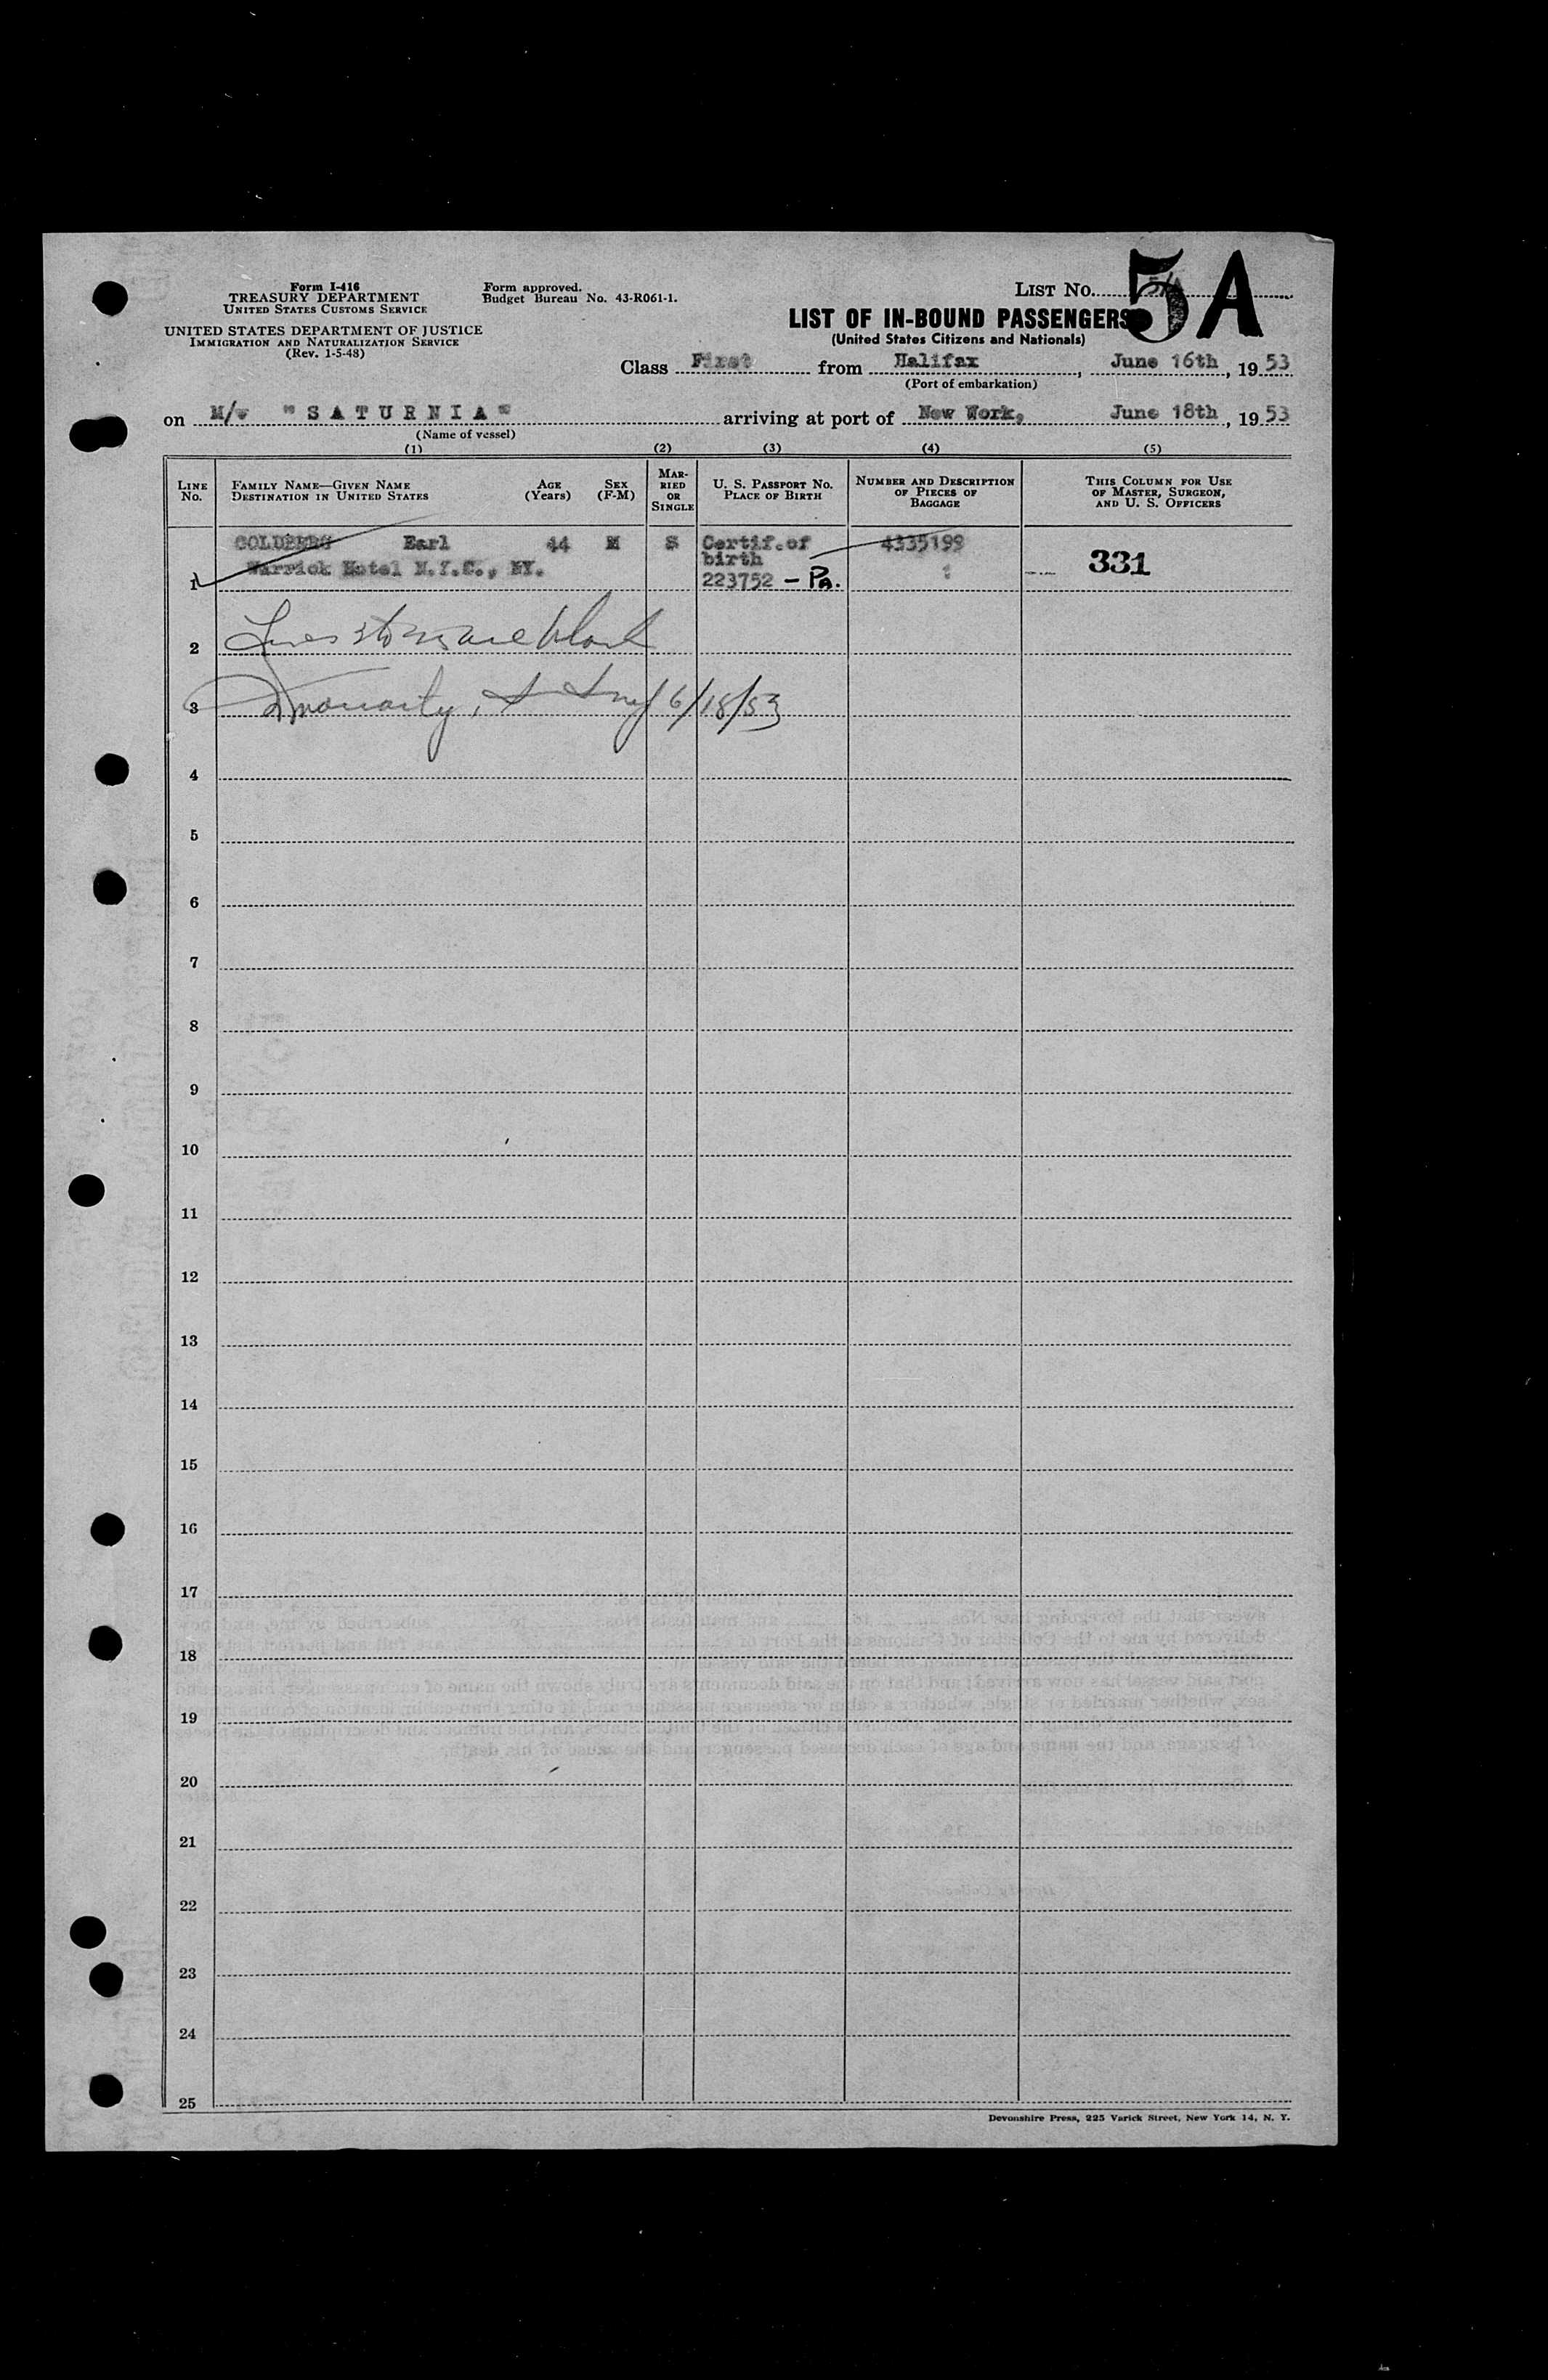 LIST No. 5A
Form I-416
TREASURY DEPARTMENT
UNITED STATES CUSTOMS SERVICE
Form approved.
Budget Bureau No. 43-R061-1.
UNITED STATES DEPARTMENT OF JUSTICE
IMMIGRATION AND NATURALIZATION SERVICE
(Rev. 1-5-48)
LIST OF IN-BOUND PASSENGERS
(United States Citizens and Nationals)
Class First from Halifax, June 16th, 1953
(Port of embarkation)
on M/v "SATURNIA" arriving at port of New Work, June 18th, 1953
(Name of vessel)
(1) (2) (3) (4) (5)
LINE No. FAMILY NAME—GIVEN NAME DESTINATION IN UNITED STATES AGE (Years) SEX (F-M) MARRIED OR SINGLE U. S. PASSPORT No. PLACE OF BIRTH NUMBER AND DESCRIPTION OF PIECES OF BAGGAGE THIS COLUMN FOR USE OF MASTER, SURGEON, AND U. S. OFFICERS
GOLDBERG Earl 44 M S Certif.of 4335199
Warwick Hotel N.Y.C., NY. birth 331
1 223752 - Pa.
2 Lines 2 to are blank
3 6/18/53
4
5
6
7
8
9
10
11
12
13
14
15
16
17
18
19
20
21
22
23
24
25
Devonshire Press, 225 Varick Street, New York 14, N. Y.